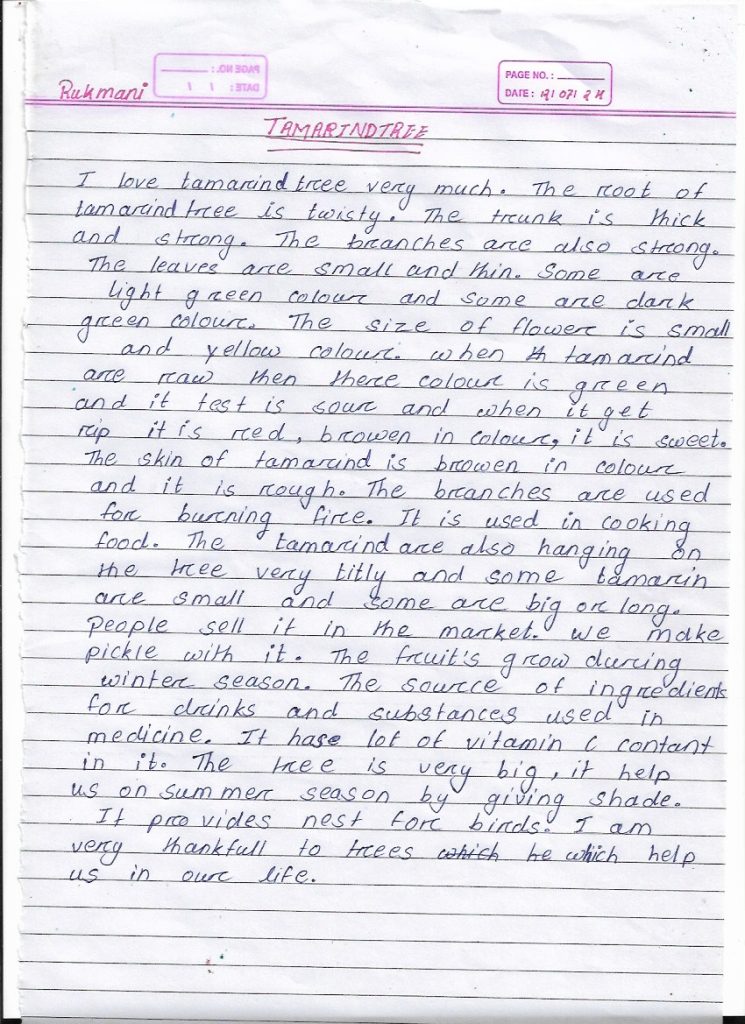 Rukmani
PAGE NO. :
DATE : / /
PAGE NO. :
DATE :
TAMARINDTREE
I love tamarind tree very much. The root of
tamarind tree is twisty. The trunk is thick
and strong. The branches are also strong.
The leaves are small and thin. Some are
light green colour and some are dark
green colour. The size of flower is small
and yellow colour. when th tamarind
are raw then there colour is green
and it test is sour and when it get
rip it is red, browen in colour, it is sweet.
The skin of tamarind is browen in colour
and it is rough. The branches are used
for burning fire. It is used in cooking
food. The tamarind are also hanging on
the tree very titly and some tamarin
are small and some are big or long.
People sell it in the market. we make
pickle with it. The fruit's grow during
winter season. The source of ingredients
for drinks and substances used in
medicine. It hase lot of vitamin C contant
in it. The tree is very big, it help
us on summer season by giving shade.
It provides nest for birds. I am
very thankfull to trees which he which help
us in our life.